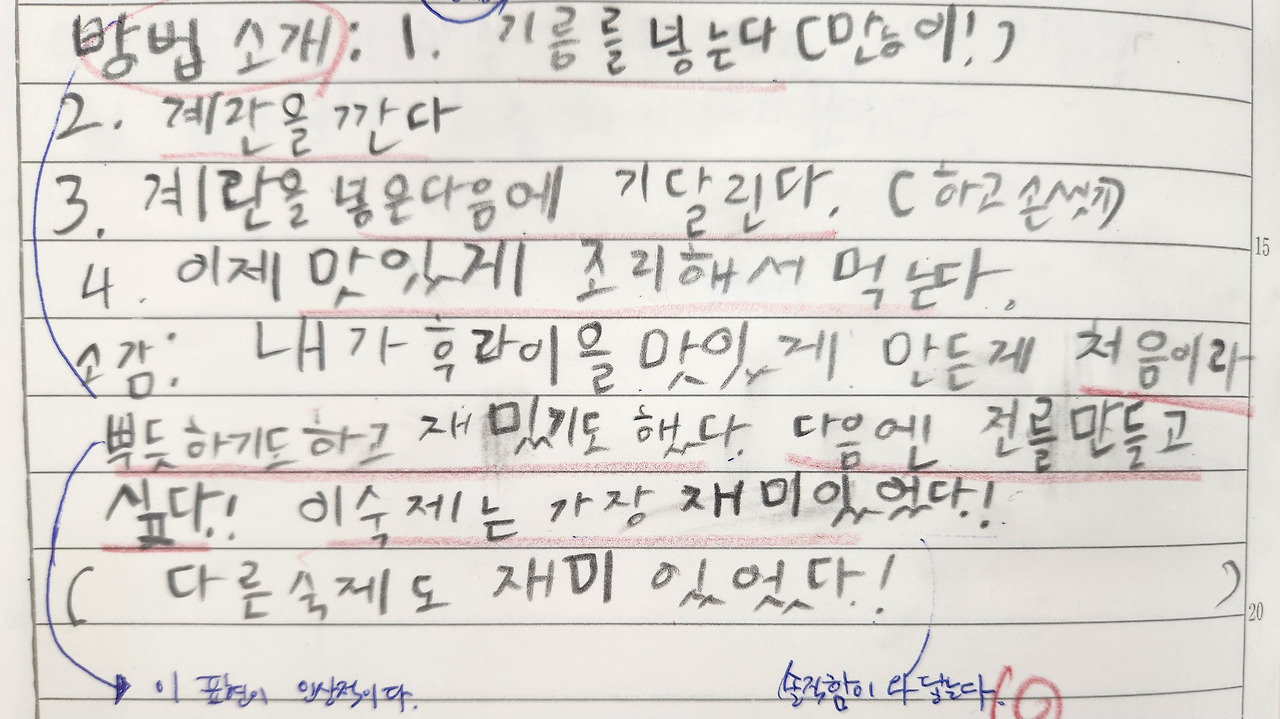 방법 소개: 1. 기름를 넣는다 (만능이!)
2. 계란을 깐다
3. 계란을 넣은다음에 기달린다. (하고 손씻기)
4. 이제 맛있게 조리해서 먹는다.
소감: 내가 후라이을 맛있게 만든게 처음이라
뿌듯하기도하고 재밌기도 했다. 다음엔 전를 만들고
싶다! 이숙제는 가장 재미있었다!
(다른숙제도 재미 있었다!)
이 표현이 인상적이다.
솔직함이 와 닿는다.
15
20